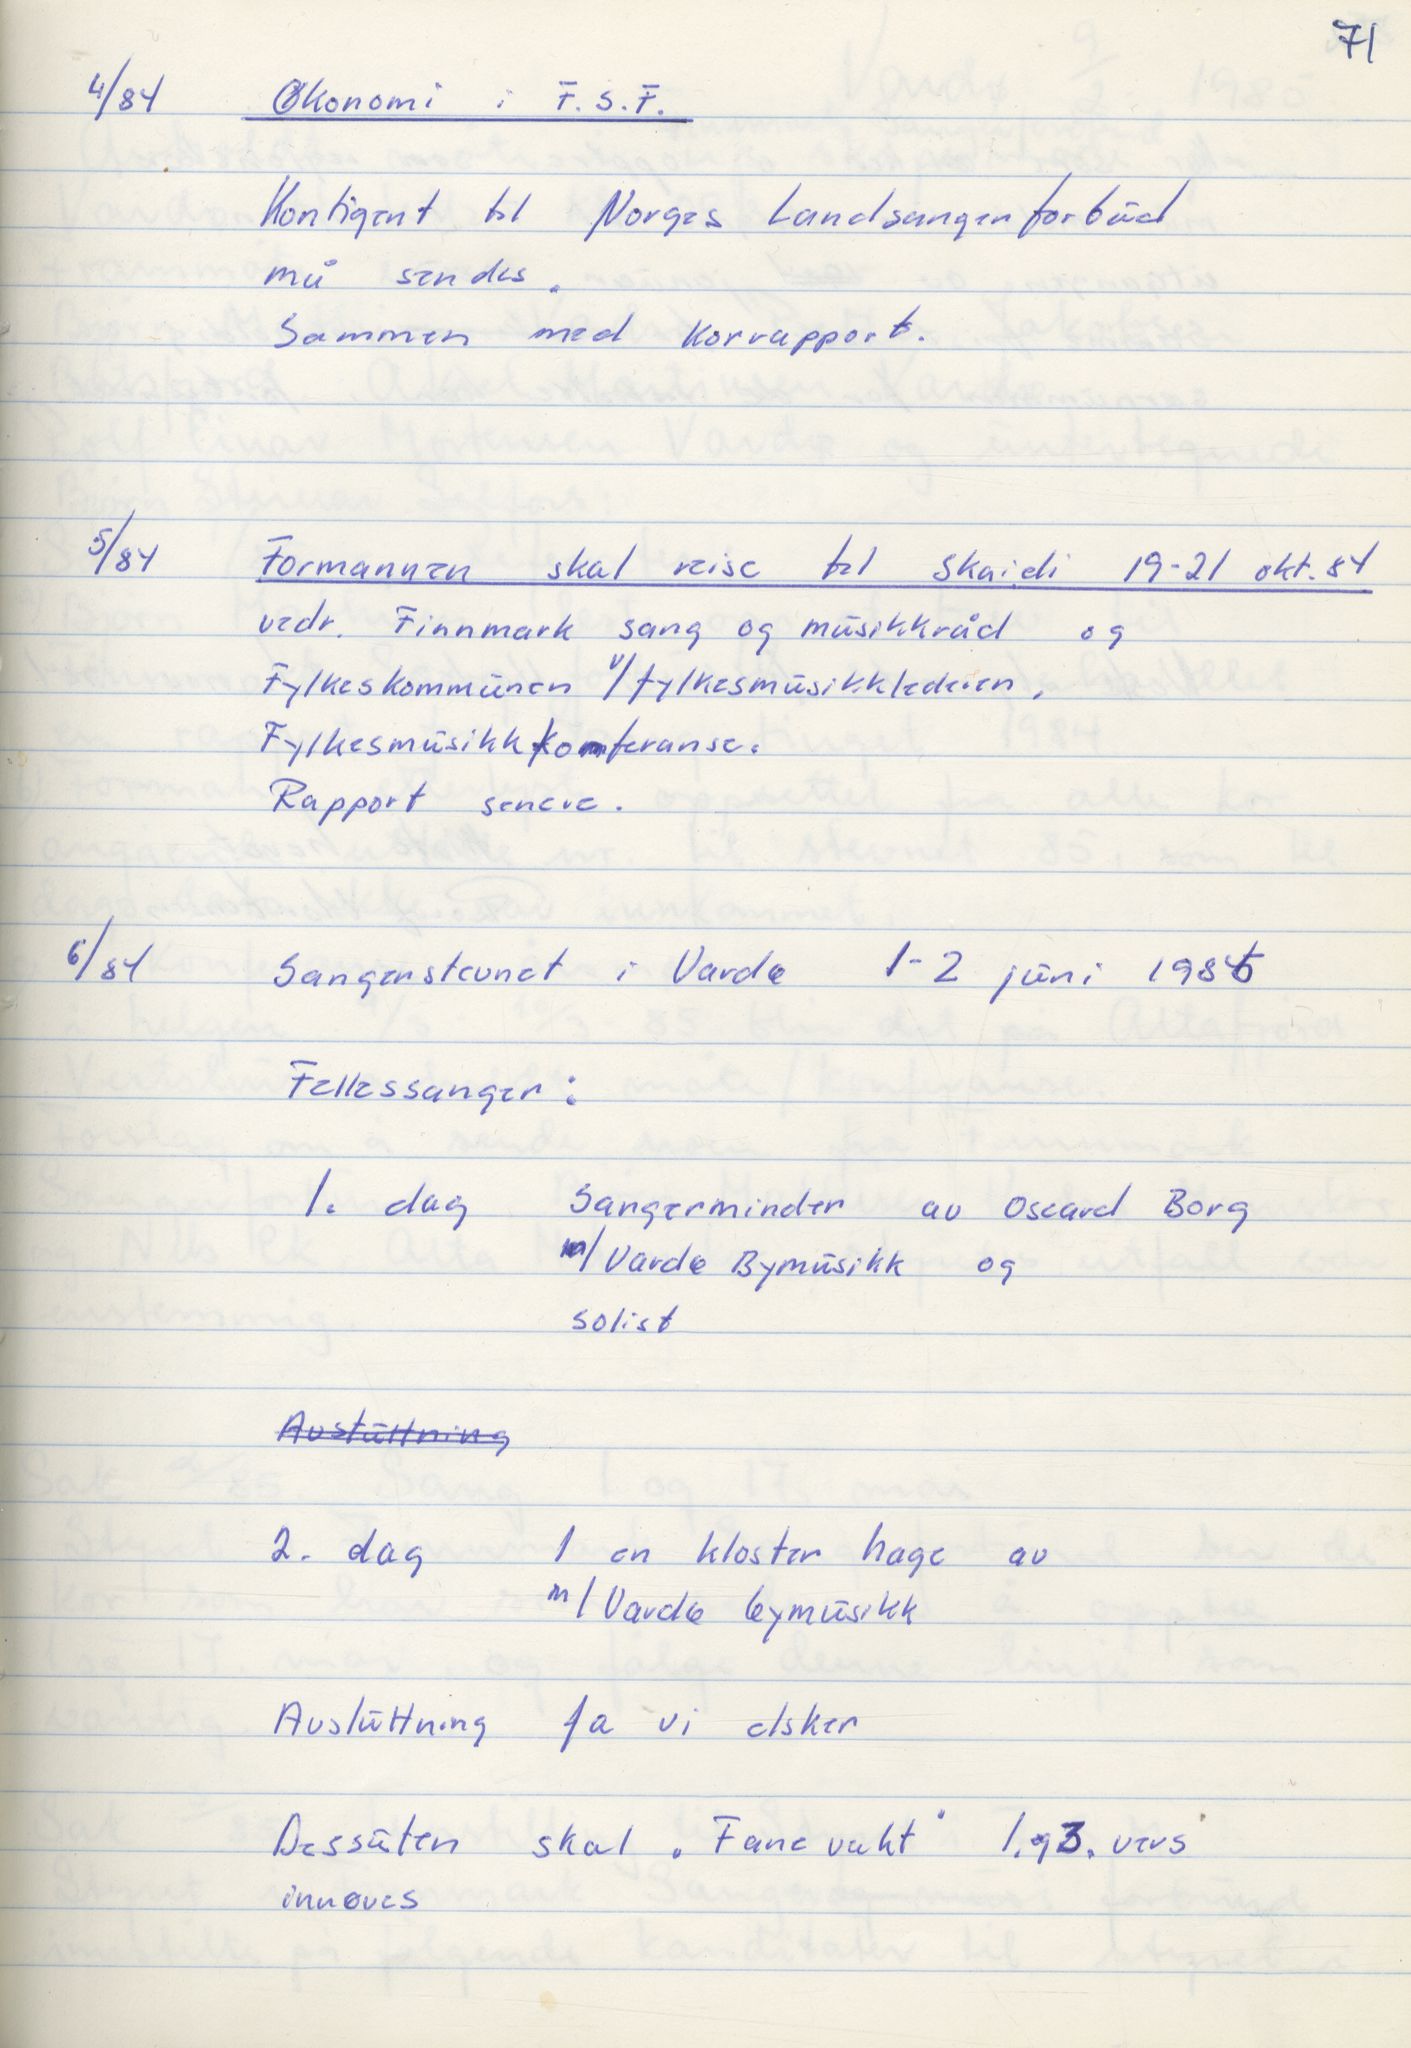 71
4/84 Økonomi i F.S.F.
Kontigent til Norges Landsangerforbud
må sendes.
Sammen med korrapport.
5/84 Formannen skal reise til Skaidi 19-21 okt. 84
vedr. Finnmark sang og musikkråd og
Fylkeskommunen v/fylkesmusikklederen,
Fylkesmusikkkonferanse.
Rapport senere.
6/84 Sangerstevnet i Vardø 1-2 juni 1985
Fellessanger:
1. dag Sangerminder av Oscard Borg
m/Vardø Bymusikk og
solist
Avsluttning
2. dag I en kloster hage av
m/Vardø bymusikk
Avsluttning Ja vi elsker
Dessuten skal "Fane vakt" 1. og 3. vers
innøves